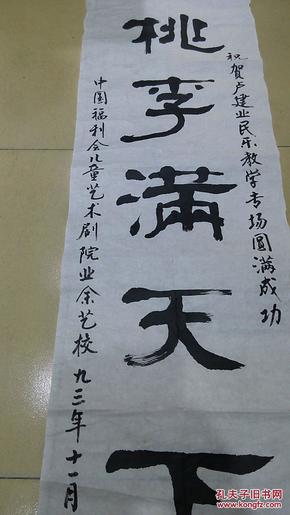 祝贺卢建业民乐教学专场圆满成功
桃李满天下
中国福利会儿童艺术剧院业余艺校 九三年十一月
孔夫子旧书网